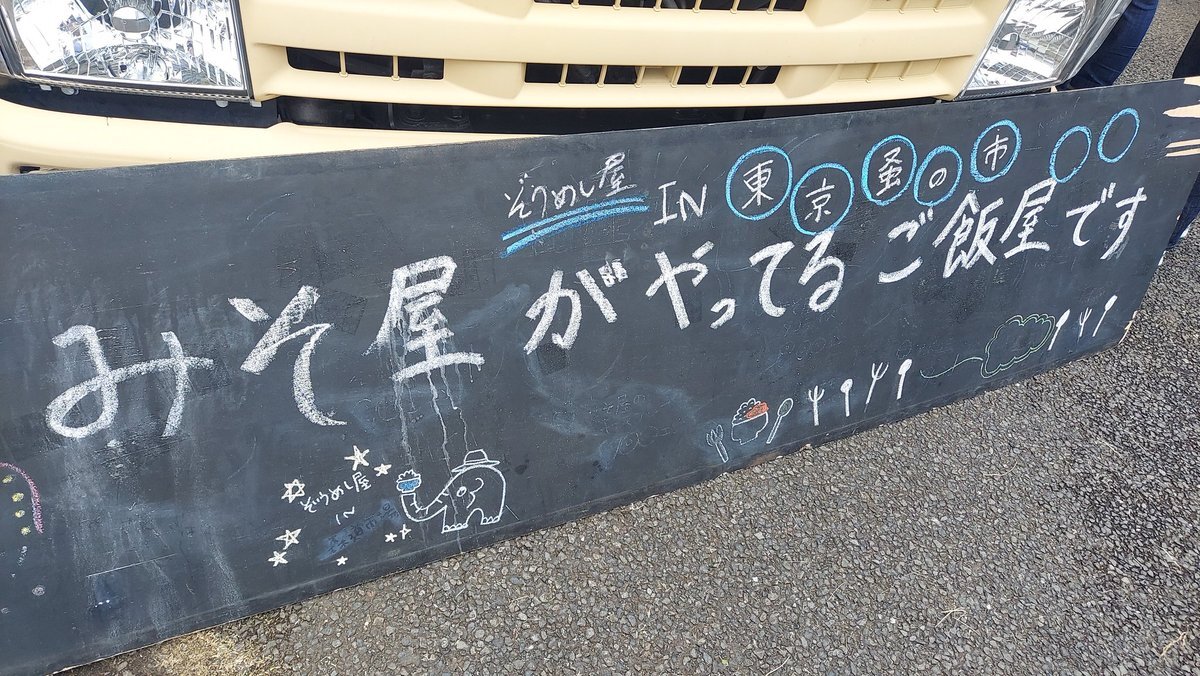 ぞうめし屋 IN 東京蚤の市
みそ屋がやってるご飯屋です
ぞうめし屋
IN